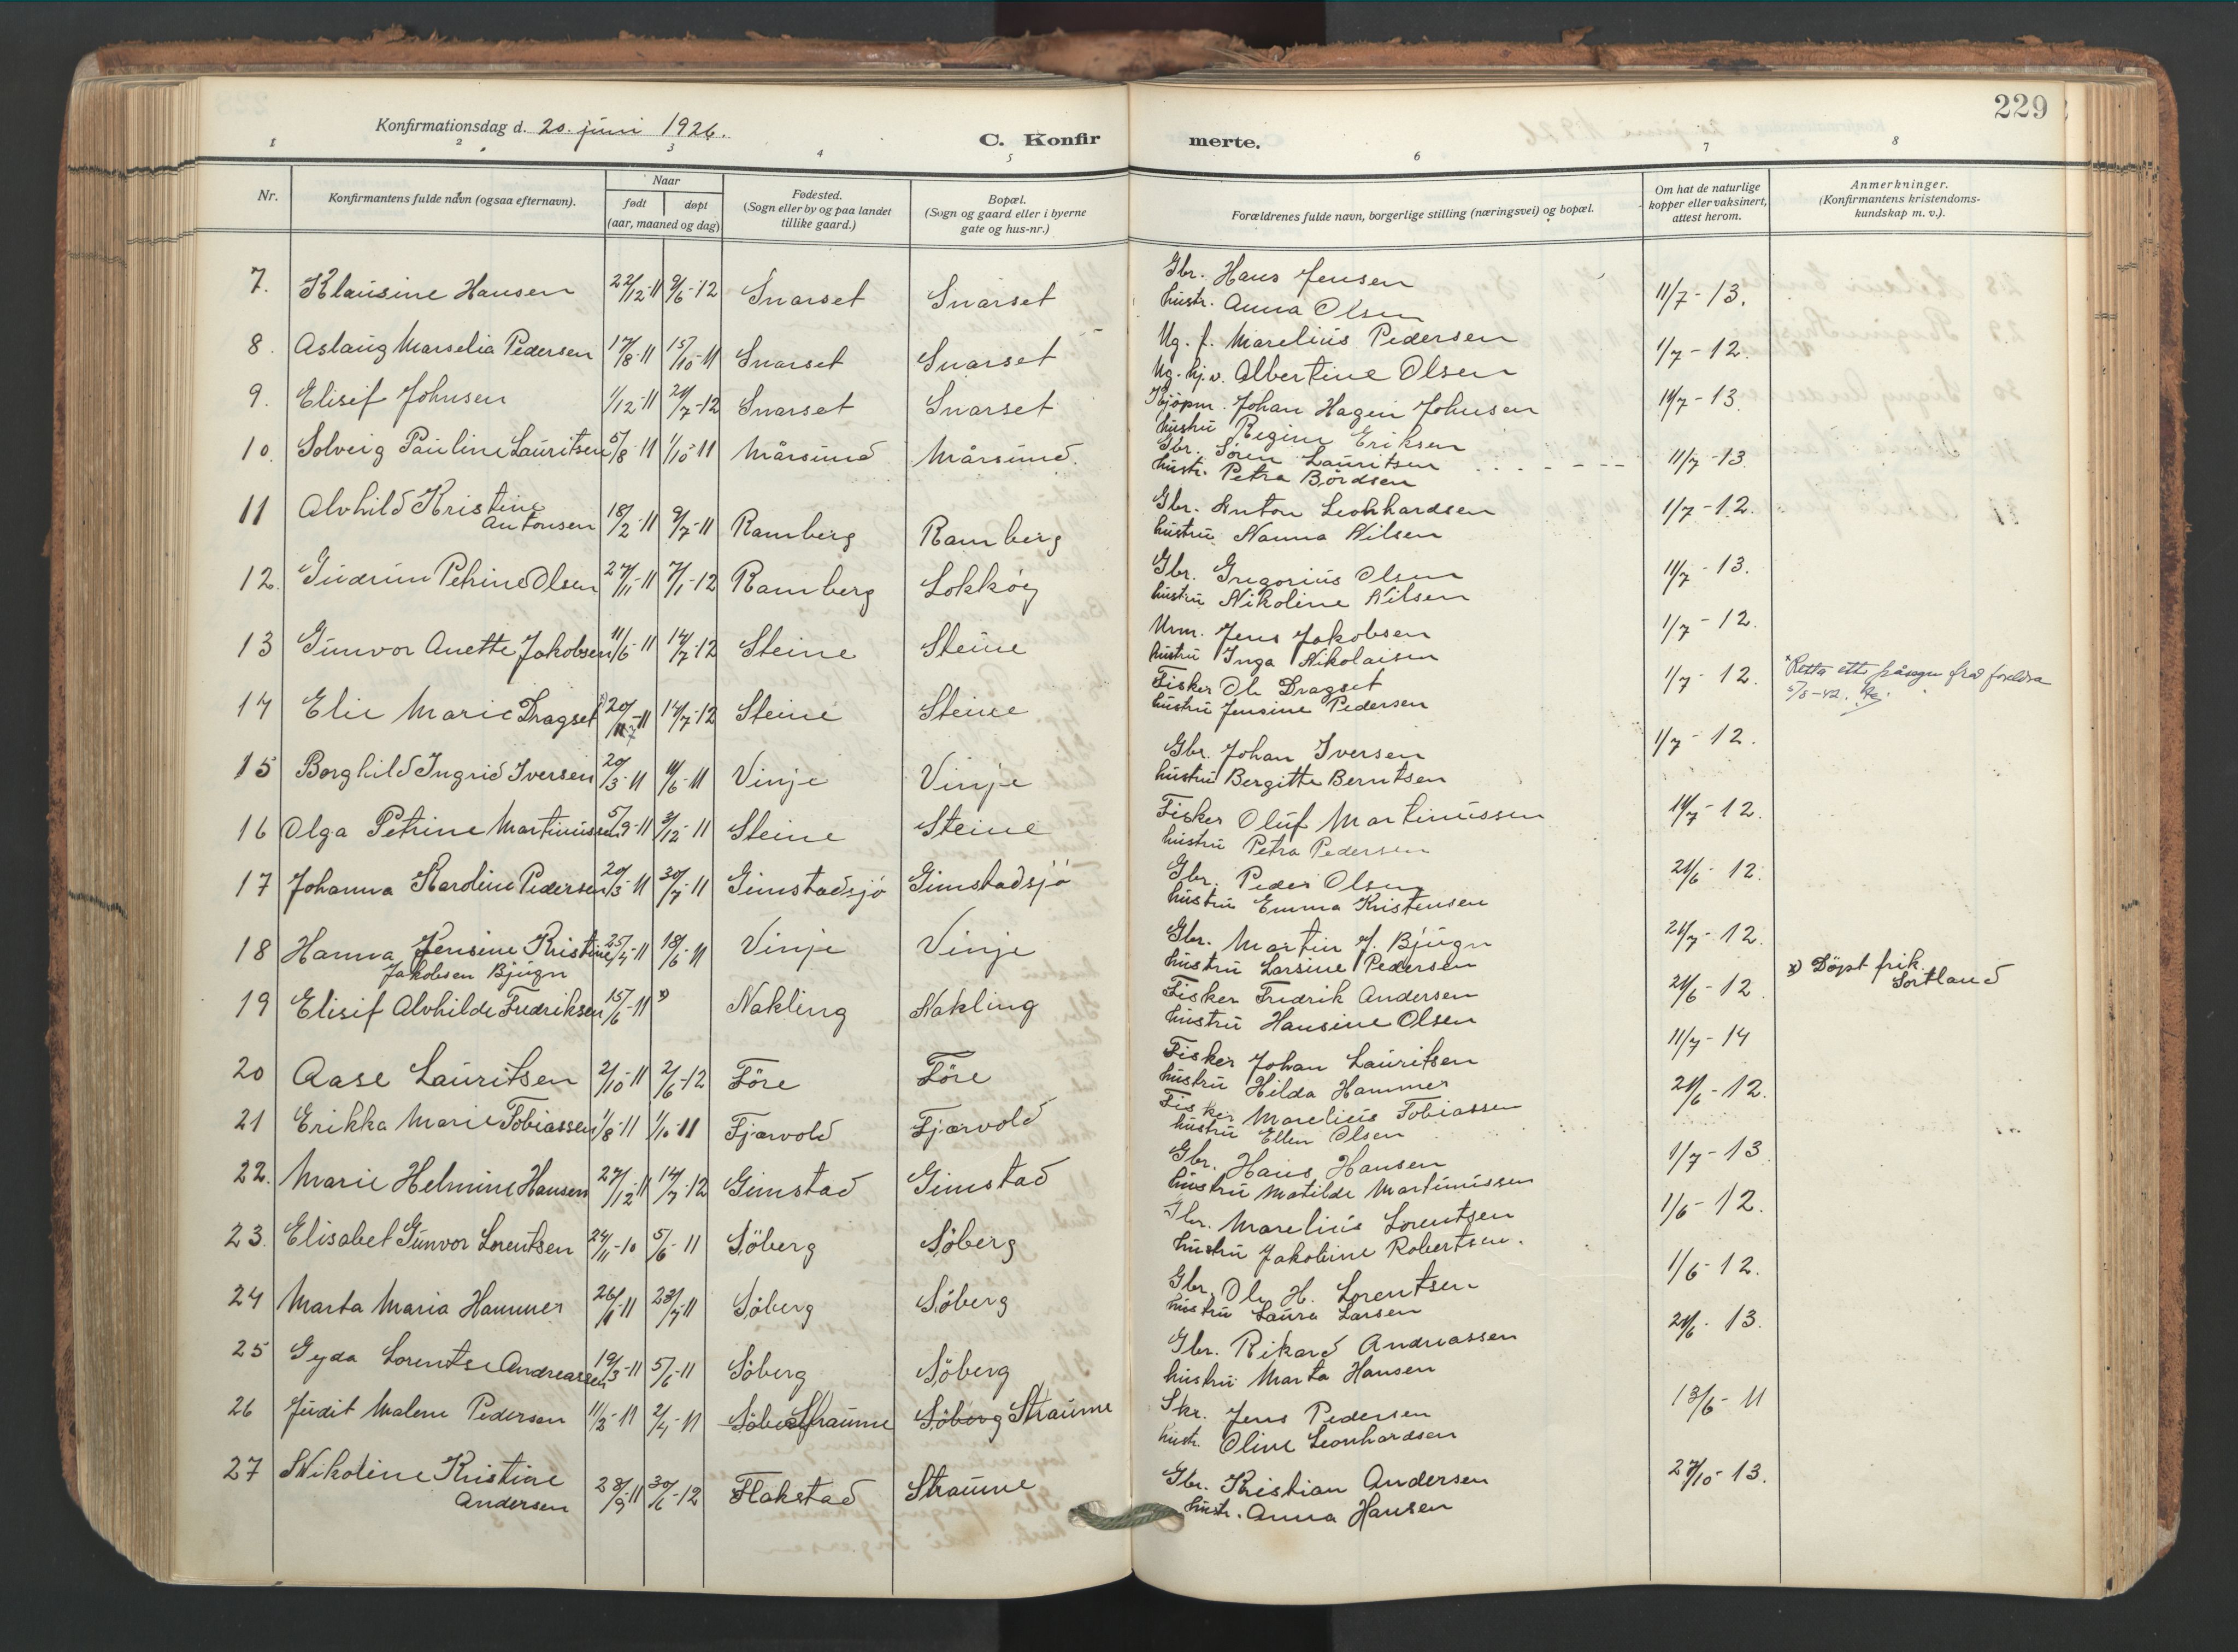 229
Konfirmationsdag d. 20. juni 1926.
C. Konfirmerte.
1 2 3 4 5 6 7 8
Nr.
Konfirmantens fulde navn (ogsaa efternavn).
Naar
født døpt
(aar, maaned og dag)
Fødested.
(Sogn eller by og paa landet
tillike gaard.)
Bopæl.
(Sogn og gaard eller i byerne
gate og hus-nr.)
Forældrenes fulde navn, borgerlige stilling (næringsvei) og bopæl.
Om hat de naturlige
kopper eller vaksinert,
attest herom.
Anmerkninger.
(Konfirmantens kristendoms-
kundskap m. v.).
7. Klausine Hansen 22/12-11 9/6-12 Snarset Snarset Gbr. Hans Jensen 11/7-13.
hustr. Anna Olsen
8. Aslaug Marselia Pedersen 17/8-11 15/10-11 Snarset Snarset Ug. f. Marelius Pedersen 1/7-12.
Ug. hj.v. Albertine Olsen
9. Elisif Johnsen 1/12-11 21/7-12 Snarset Snarset Kjöpm. Johan Hagen Johnsen 14/7-13.
hustru Regine Eriksen
10. Solveig Pauline Lauritsen 5/8-11 1/10-11 Mårsund Mårsund. Gbr. Sören Lauritsen 11/7-13
hustr. Petra Bördsen
11 Alvhild Kristine
Antonsen 18/2-11 9/7-11 Ramberg Ramberg Gbr. Anton Leonhardsen 1/7-12.
hustru Nanna Nilsen
12. Gudrun Petrine Olsen 27/11-11 7/1-12 Ramberg Lokköy Gbr. Gregorius Olsen 11/7-13.
hustru Nikoline Nilsen
13 Gunvor Anette Jakobsen 11/6-11 14/7-12 Steine Steine Urm. Jens Jakobsen 1/7-12.
hustru Inga Nikolaisen
14 Elie Marie Dragset x) 20/7-11 14/7-12 Steine Steine Fisker Ole Dragset 1/7-12. x Retta ette påsegn frå foreldra
hustru Jensine Pedersen 5/5-42.
15 Borghild Ingrid Iversen 20/3-11 11/6-11 Vinje Vinje Gbr. Johan Iversen 1/7-12.
hustru Bergitte Berntsen
16 Olga Petrine Martinussen 5/9-11 3/12-11 Steine Steine Fisker Oluf Martinussen 14/7-12.
hustru Petra Pedersen
17 Johanna Karoline Pedersen 20/3-11 30/7-11 Gimstadsjö Gimstadsjö Gbr. Peder Olsen 21/6-12.
hustru Emma Kristensen
18 Hanna Jensine Kristine
Jakobsen Bjugn 25/4-11 18/6-11 Vinje Vinje Gbr. Martin J. Bjugn 21/7-12.
hustru Larsine Pedersen
19 Elisif Alvhilde Fredriksen 15/6-11 x) Nakling Nakling Fisker Fredrik Andersen 21/6-12 x) Döpt frik.
Sortland
hustru Hansine Olsen
20 Aase Lauritsen 2/10-11 2/6-12 Före Före Fisker Johan Lauritsen 11/7-14
hustru Hilda Hammer
21 Erikka Marie Tobiassen 1/8-11 1/10-11 Fjærvold Fjærvold Fisker Marelius Tobiassen 21/6-12.
hustru Ellen Olsen
22. Marie Helmine Hansen 27/12-11 14/7-12 Gimstad Gimstad Gbr. Hans Hansen 1/7-13
hustru Matilde Martinussen
23. Elisabet Gunvor Lorentsen 24/11-10 5/6-11 Söberg Söberg Gbr. Marelius Lorentsen 1/6-12.
hustru Jakobine Robertsen.
24 Marta Maria Hammer 26/1-11 23/7-11 Söberg Söberg Gbr. Ole H. Lorentsen 1/6-12.
hustru Laura Larsen
25 Gyda Lorentse Andreassen 19/3-11 5/6-11 Söberg Söberg Gbr. Rikard Andreassen 21/6-13.
hustru Marta Hansen
26 Judit Malene Pedersen 11/2-11 2/4-11 Söberg Straume Söberg Straume Skr. Jens Pedersen 13/6-11
hustr. Oline Leonhardsen
27 Nikoline Kristine
Andersen 28/9-11 30/6-12 Flakstad Straume Gbr. Kristian Andersen 27/10-13.
hustr. Anna Hansen